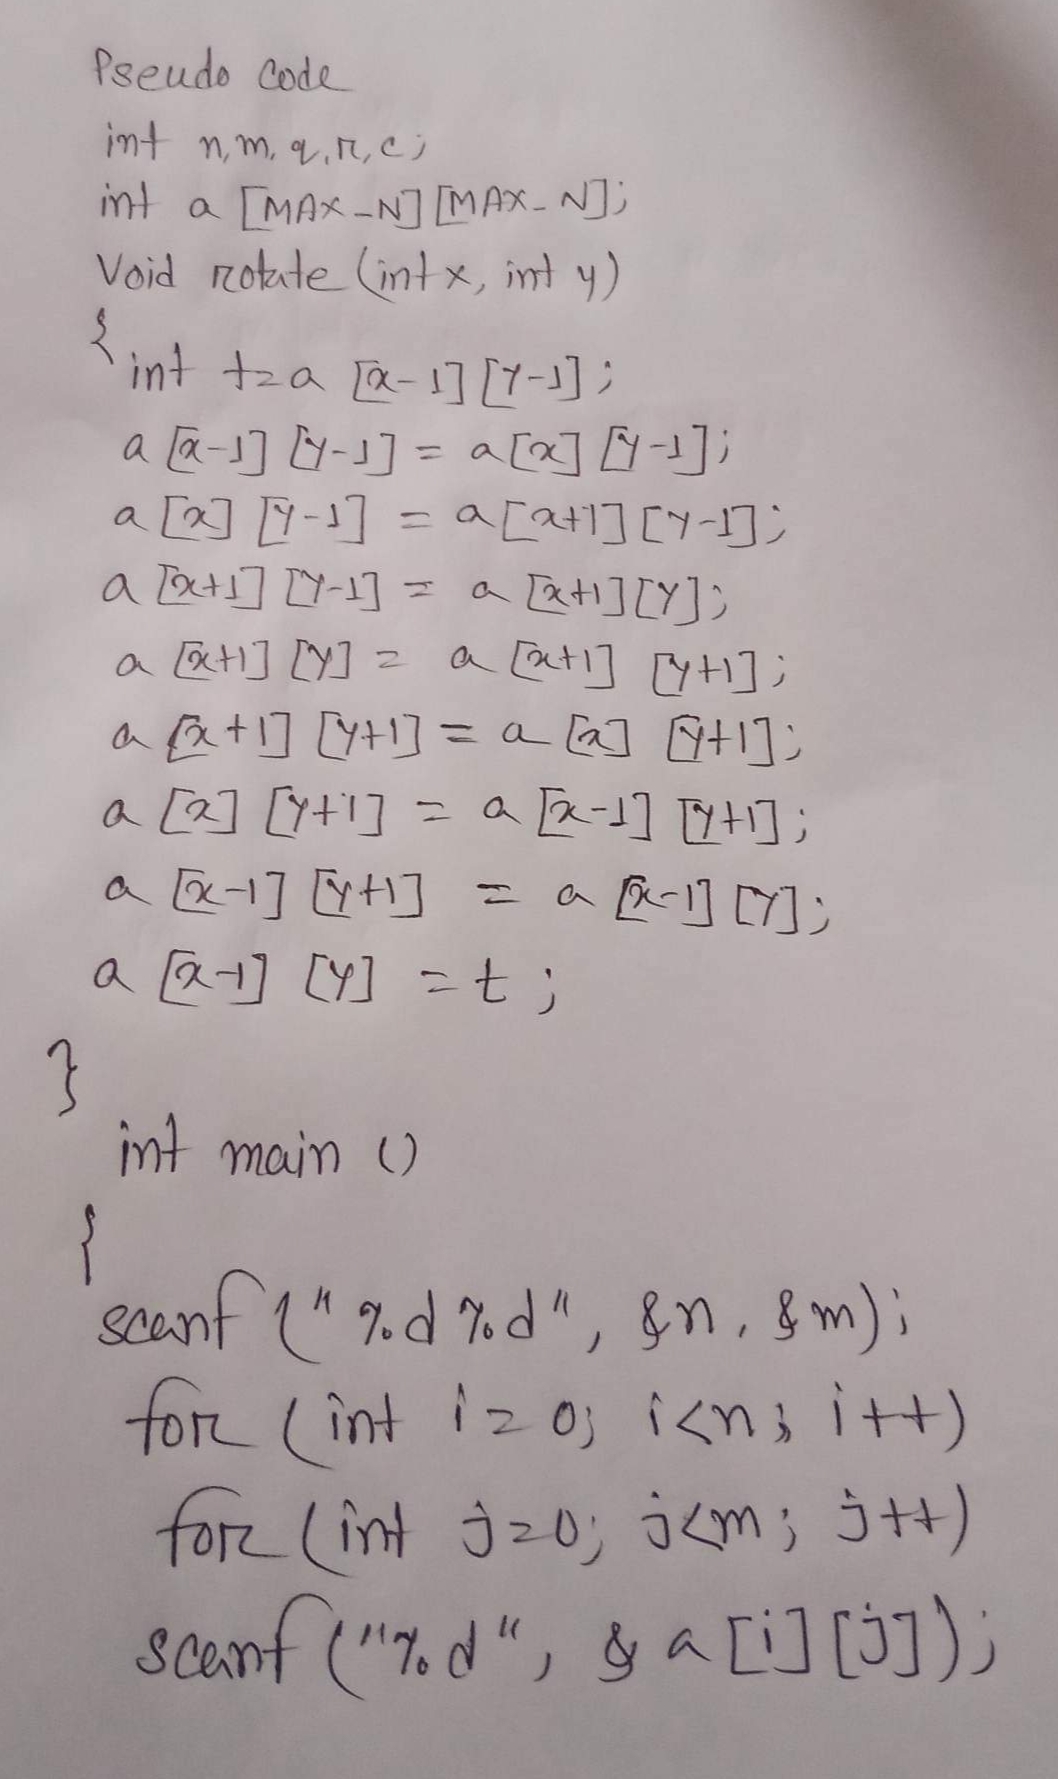 Pseudo Code
int n, m, q, r, c;
int a [MAX_N][MAX_N];
Void rotate (int x, int y)
{
int t=a [x-1] [y-1];
a [x-1] [y-1] = a [x] [y-1];
a [x] [y-1] = a [x+1] [y-1];
a [x+1] [y-1] = a [x+1] [y];
a [x+1] [y] = a [x+1] [y+1];
a [x+1] [y+1] = a [x] [y+1];
a [x] [y+1] = a [x-1] [y+1];
a [x-1] [y+1] = a [x-1] [y];
a [x-1] [y] = t ;
}
int main ()
{
scanf ("%d %d", &n, &m);
for (int i=0; i<n; i++)
for (int j=0; j<m; j++)
scanf ("%d", & a [i] [j]);